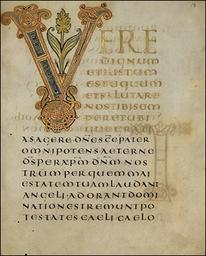 VERE
DIGNUM
ETIUSTUM
ESTEQUUM
ETSALUTARE
NOSTIBISEM
PERETUBI
QUEGRATI
ASAGERE DNE SCE PATER
OMNIPOTENS AETERNE
DS PER XPM DNM NOS
TRUM PER QUEM MAI
ESTATEM TUAM LAUDANT
ANGELI ADORANT DOMI
NATIONES TREMUNT PO
TESTATES CAELI CAELO